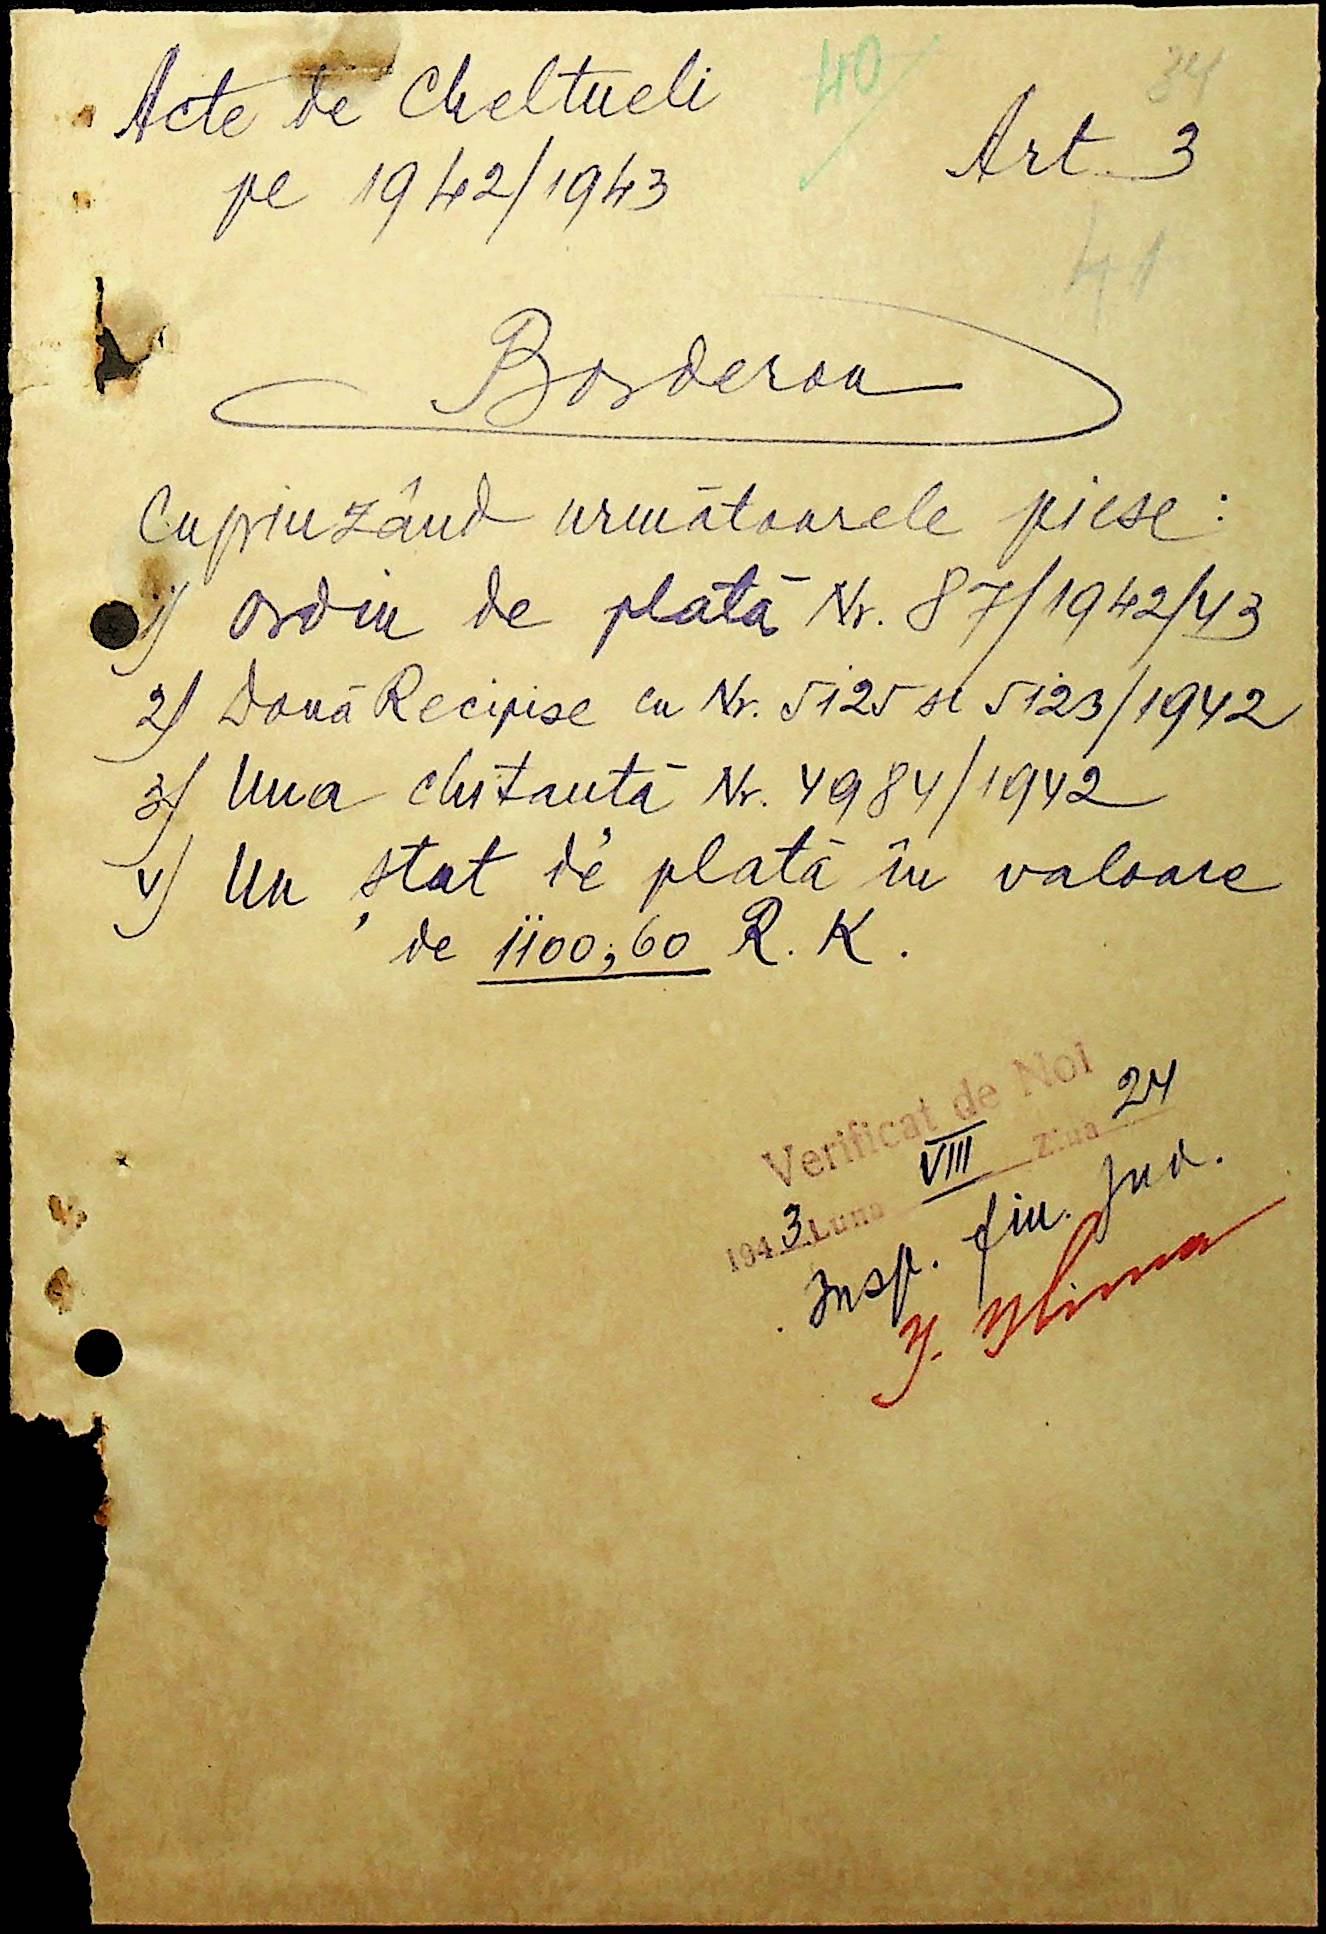 Acte de Cheltueli
pe 1942/1943
40
34
Art. 3
41
Borderou
Cuprinzând următoarele piese:
1) Ordin de plată Nr. 87/1942/43
2) Două Recipise cu Nr. 5125 si 5123/1942
3) Una chitanță Nr. 4984/1942
4) Un ștat de plată în valoare
de 1100;60 R.K.
Verificat de Noi
1943 Luna VIII Ziua 24
Insp. fin. Jud.